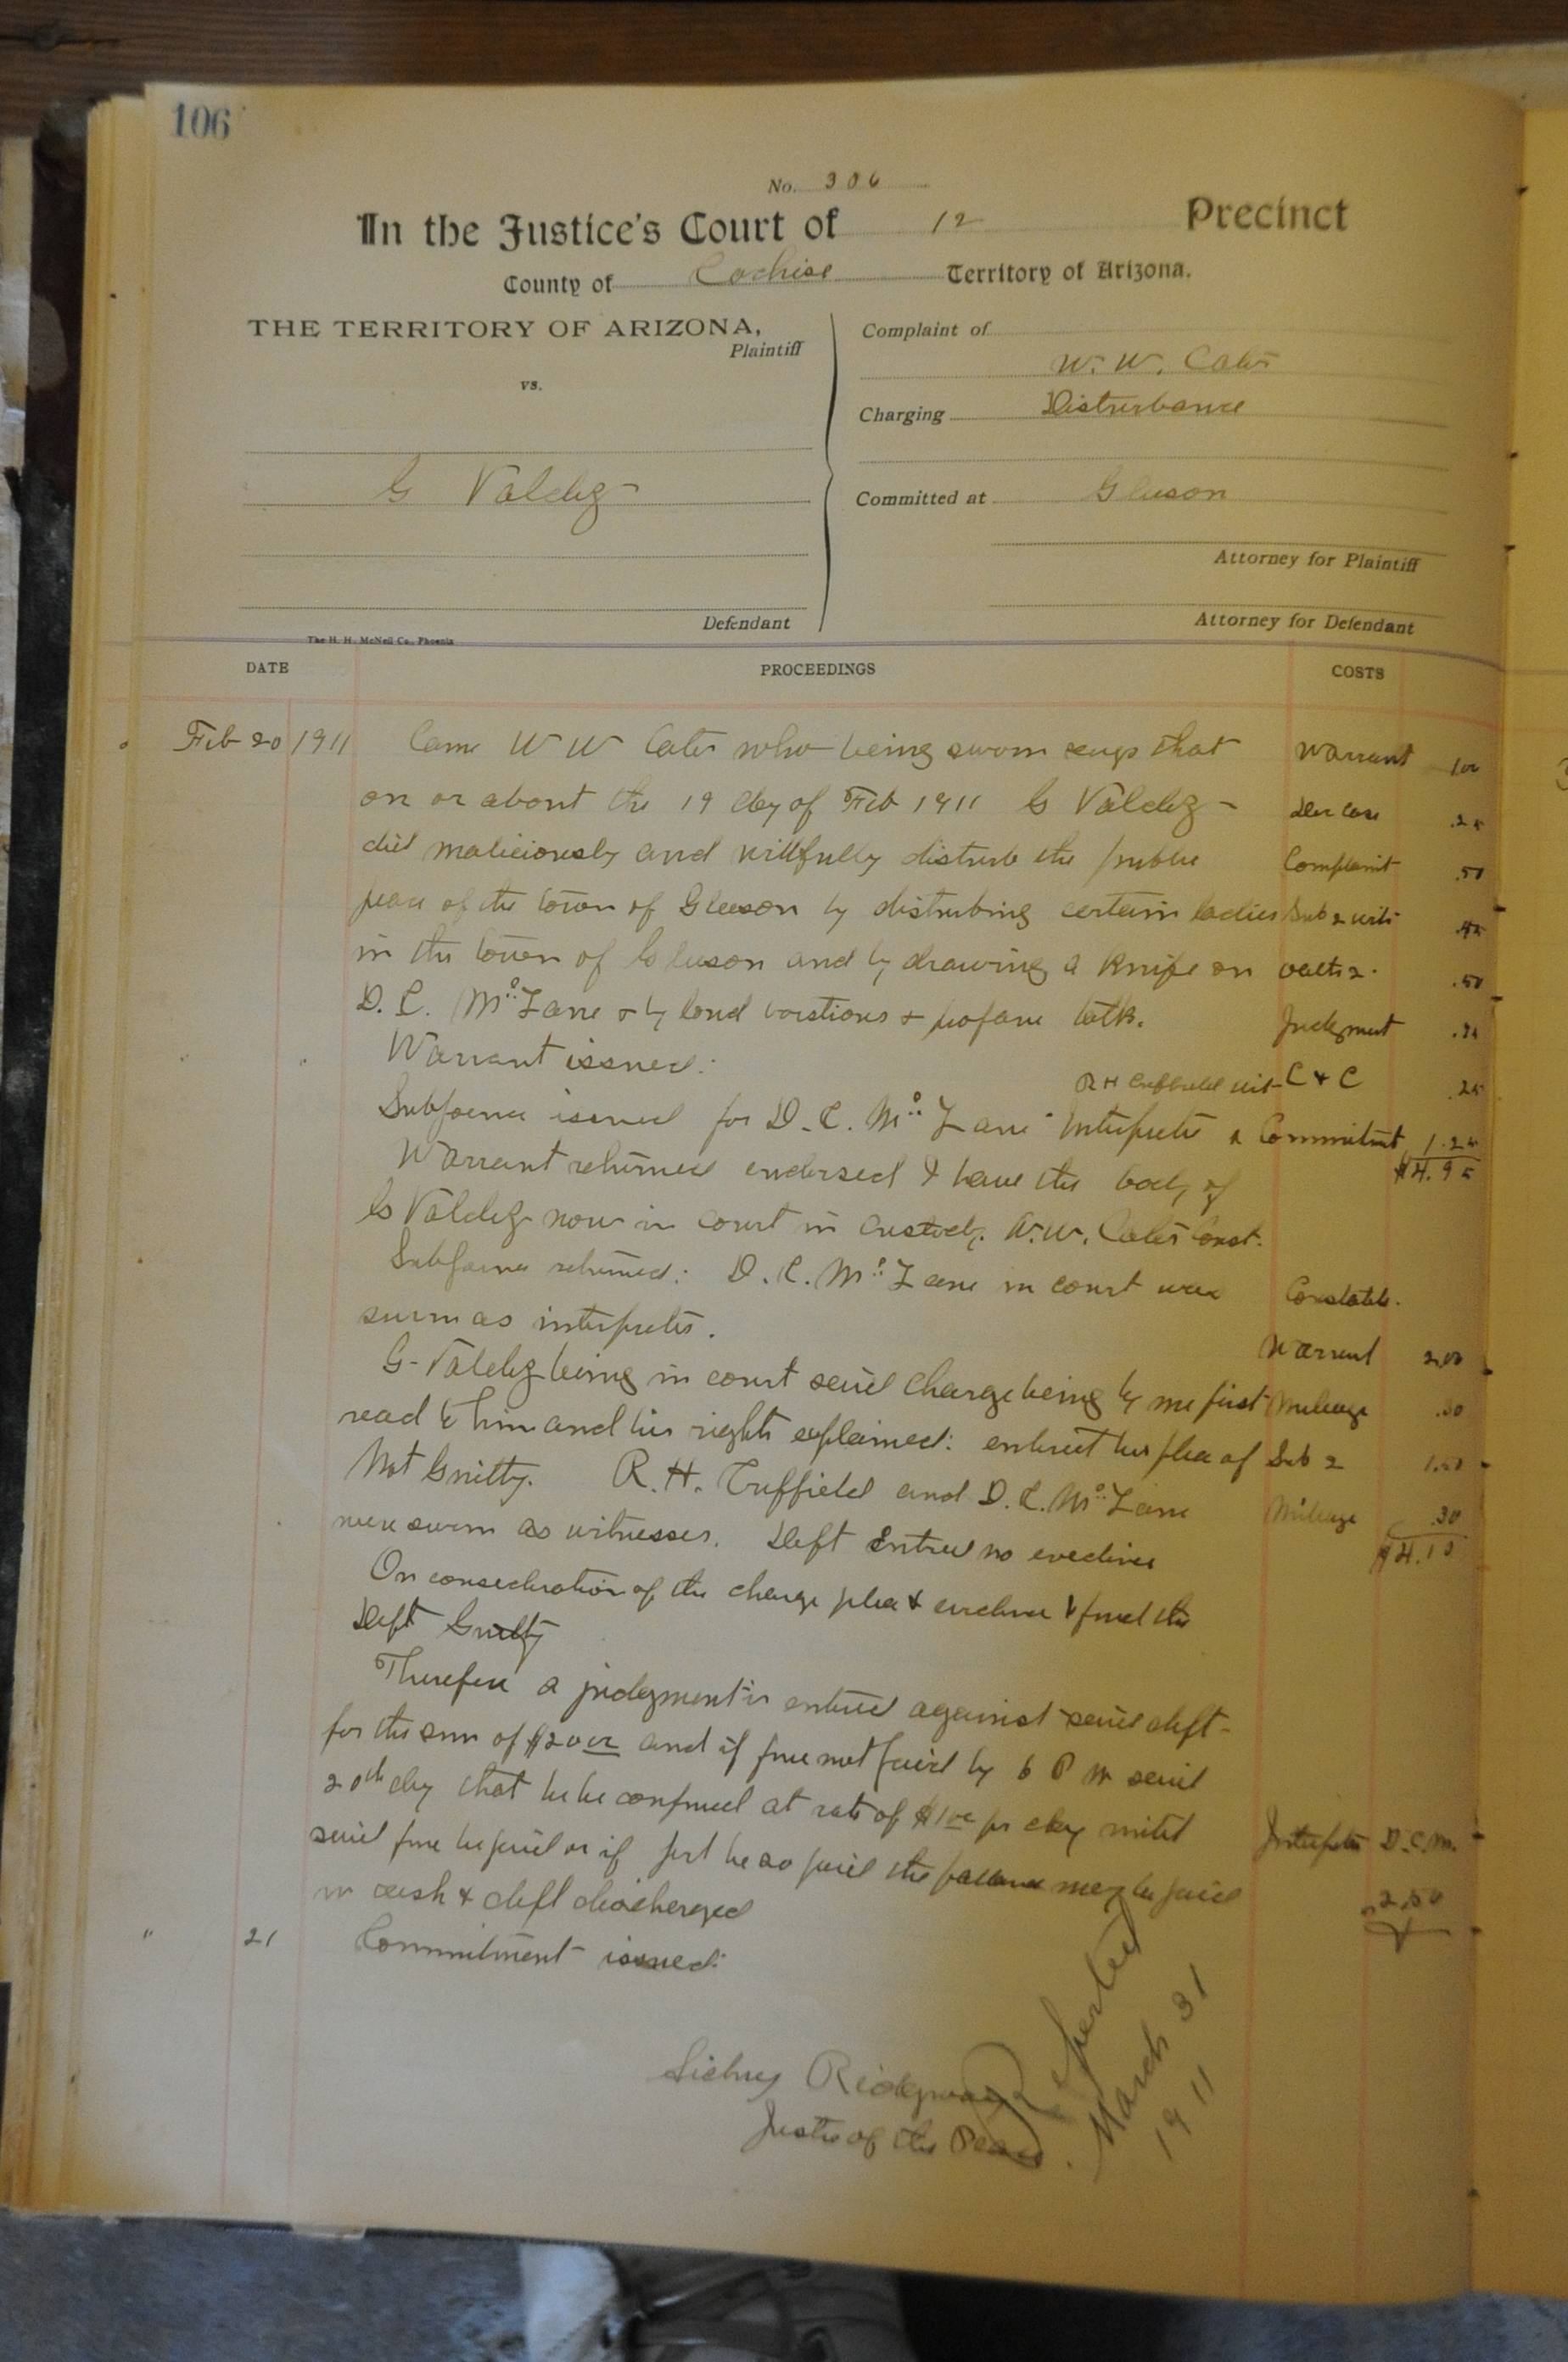 106
No. 306
In the Justice's Court of 12 Precinct
County of Cochise Territory of Arizona.
THE TERRITORY OF ARIZONA,
Plaintiff
vs.
G Valdez
Defendant
The H. H. McNeil Co., Phoenix
Complaint of
W. W. Cates
Charging Disturbance
Committed at Gleeson
Attorney for Plaintiff
Attorney for Defendant
DATE PROCEEDINGS COSTS
Feb 20 1911 Came W W Cates who being sworn says that Warrant 1.00
on or about the 19 day of Feb 1911 G Valdez .25
did maliciously and willfully disturb the public Complaint .50
peace of the town of Gleeson by disturbing certain ladies Sub 2 wits
in the town of Gleeson and by drawing a knife on oaths 2. .50
D. C. McLane & by loud boistious & profane talk. Judgment
Warrant issued: R H Cuffield wit C & C .25
Subpoena issued for D. C. McLane Interpreter & Commitment 1.25
$4.95
Warrant returned endorsed I have the body of
G Valdez now in court in custody. W. W. Cates Const.
Subpoena returned: D. C. McLane in court was Constable.
sworn as interpreter.
Warrant 2.00
G. Valdez being in court said charge being by me first Mileage .30
read to him and his rights explained: entered his plea of Sub 2 1.50
Not Guilty. R. H. Cuffield and D. C. McLane Mileage .30
were sworn as witnesses. Deft Entred no evedince $4.10
On consideration of the charge plea & evidence I find the
Deft Guilty
Therefore a judgment is entered against said deft
for the sum of $20 00 and if fine not paid by 6 P M said
20th day that he be confined at rate of $1 00 per day until
said fine be paid or if part be so paid the balance may be paid Interpreter D. C. M.
in cash & deft discharged 2.50
" 21 Commitment issued:
Sidney Ridgway
Justice of the Peace.
Reported
March 31
1911